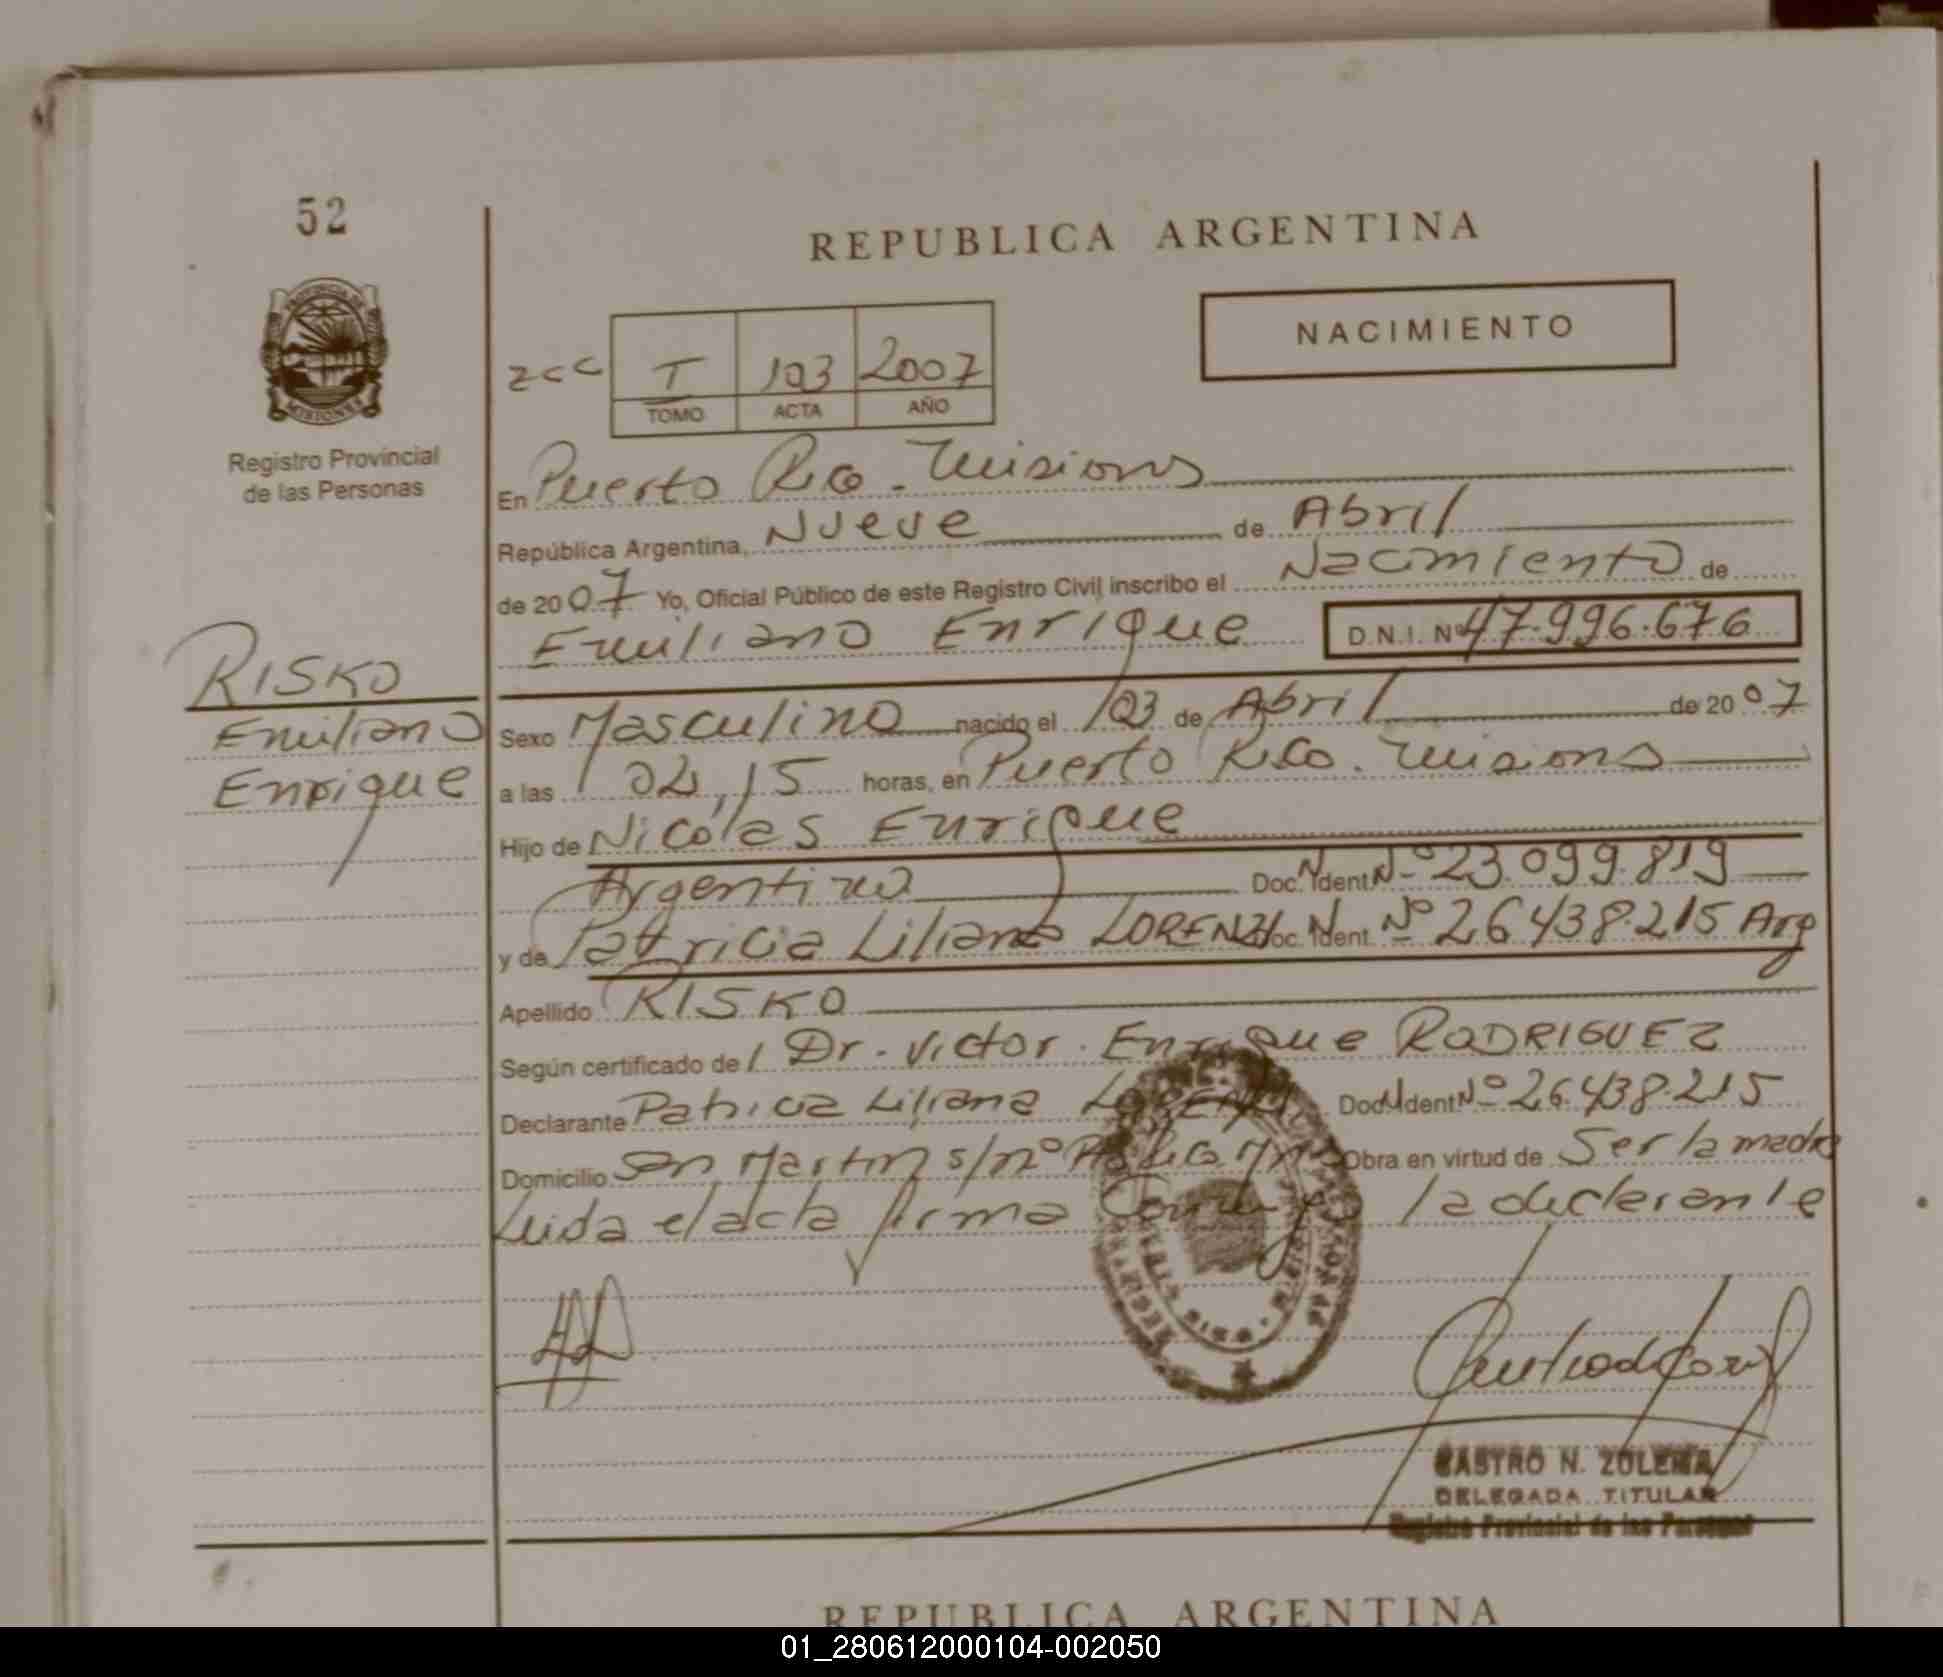 52
REPUBLICA ARGENTINA
PROVINCIA DE
MISIONES
NACIMIENTO
zcc I 103 2007
TOMO ACTA AÑO
Registro Provincial
de las Personas
En Puerto Rico - Misiones
República Argentina, Nueve de Abril
de 2007 Yo, Oficial Público de este Registro Civil inscribo el Nacimiento de
Emiliano Enrique D.N.I. Nº 47.996.676
RISKO
Emiliano
Enrique
Sexo Masculino nacido el 03 de Abril de 2007
a las 02,15 horas, en Puerto Rico. Misiones
Hijo de Nicolas Enrique
Argentino Doc. N. Ident. Nº 23.099.819
y de Patricia Liliana LORENZ Doc. N. Ident. Nº 26438.215 Arg
Apellido RISKO
Según certificado de Dr. Victor. Enrique RODRIGUEZ
Declarante Patricia Liliana Doc. N Ident Nº 26.438.215
Domicilio San Martin s/nº Obra en virtud de Ser la madre
Leida el acta firma la declarante
CASTRO N. ZULEMA
DELEGADA TITULAR
Registro Provincial de las Personas
REPUBLICA ARGENTINA
01_280612000104-002050